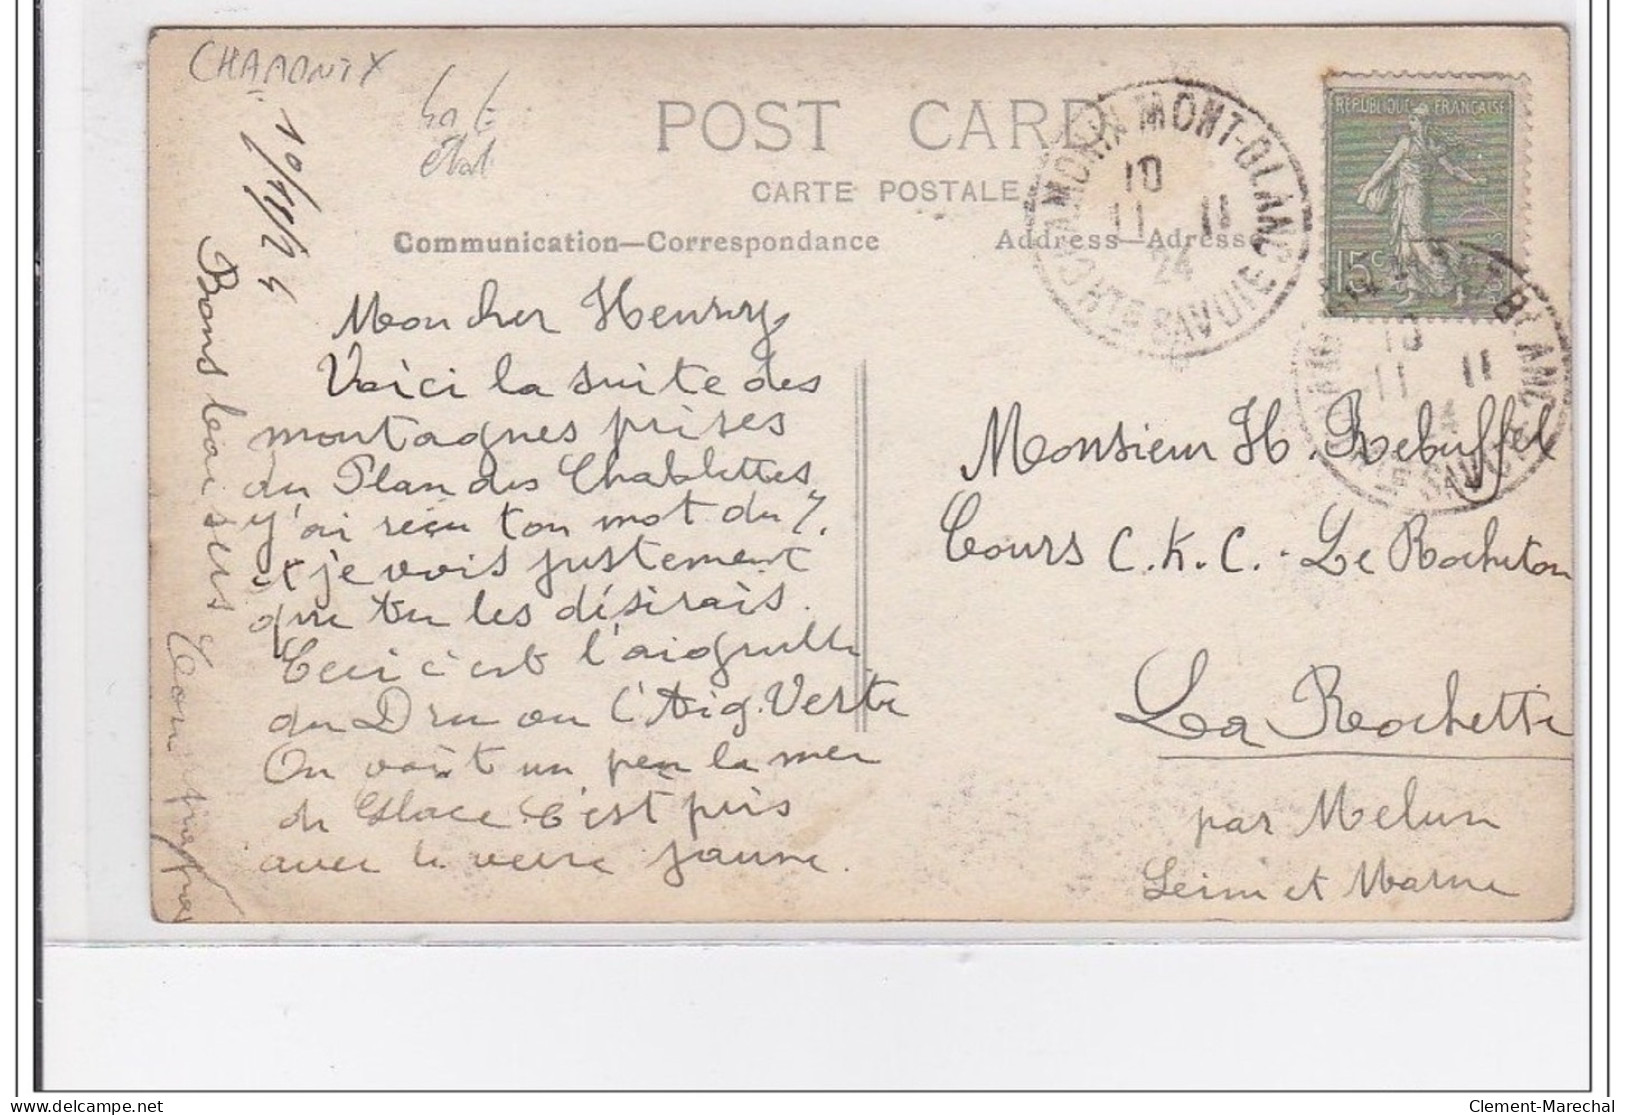 CHAMONIX
état
10/11/24
POST CARD
CARTE POSTALE
Communication—Correspondance
Address—Adresse
CHAMONIX MONT-BLANC
10
11 11
24
HTE SAVOIE
REPUBLIQUE FRANÇAISE
15c
BLANC
10
11 11
SAVOIE
Mon cher Henry
Voici la suite des
montagnes prises
du Plan des Chablettes
J'ai reçu ton mot du 7.
et je vois justement
que tu les désirais.
Ceci c'est l'aiguille
du Dru ou l'Aig. Verte
On voit un peu la mer
de Glace. C'est pris
avec le verre jaune.
Bons baisers
Ton
Monsieur H. Rebuffel
Cours C.K.C. - Le Rocheton
La Rochette
par Melun
Seine et Marne
delcampe.net
Clement-Marechal